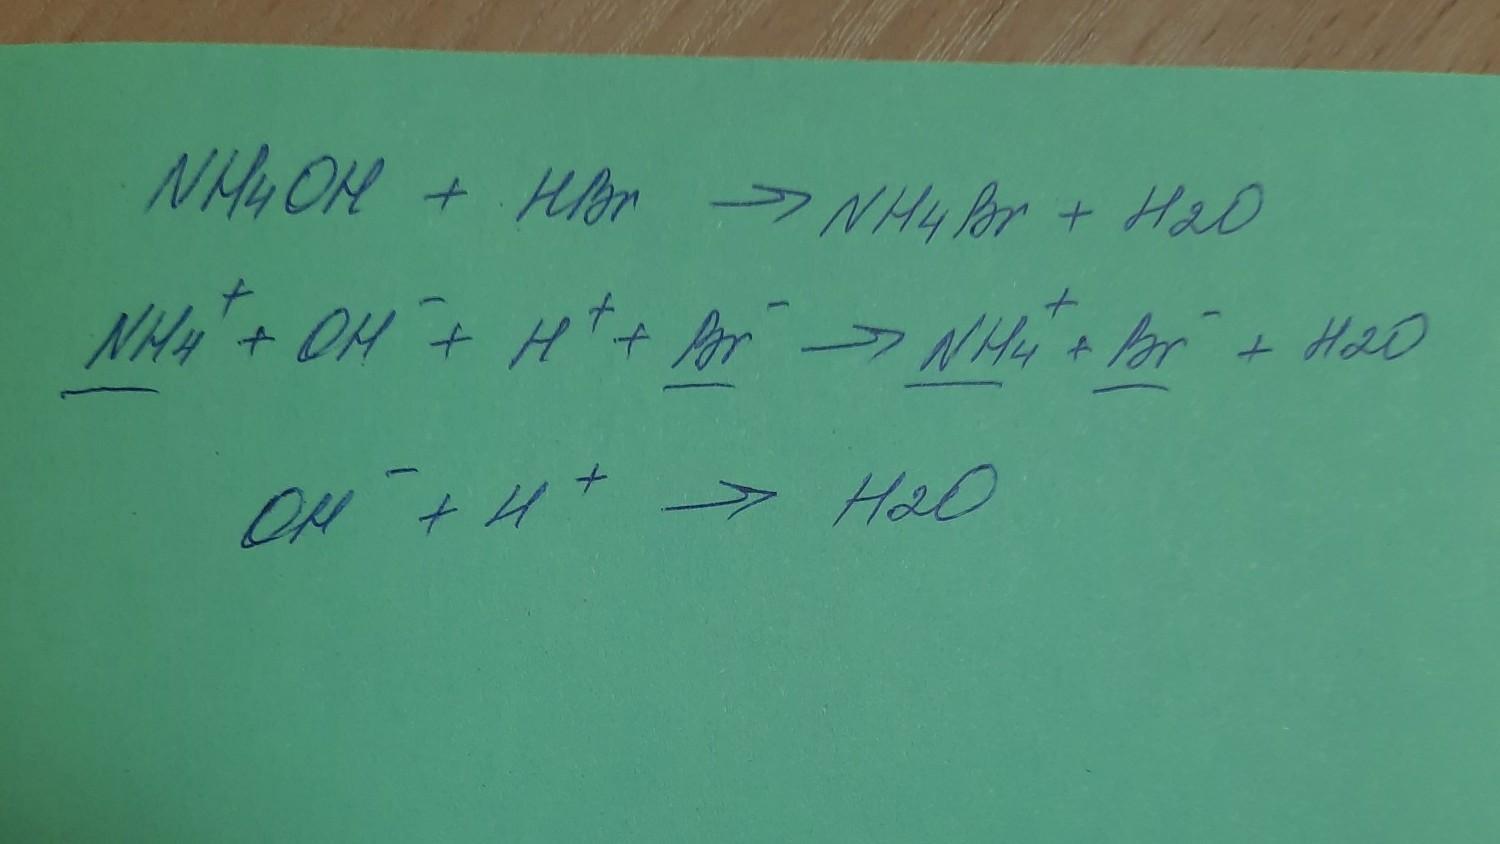 NH4OH + HBr → NH4Br + H2O
NH4⁺ + OH⁻ + H⁺ + Br⁻ → NH4⁺ + Br⁻ + H2O
OH⁻ + H⁺ → H2O